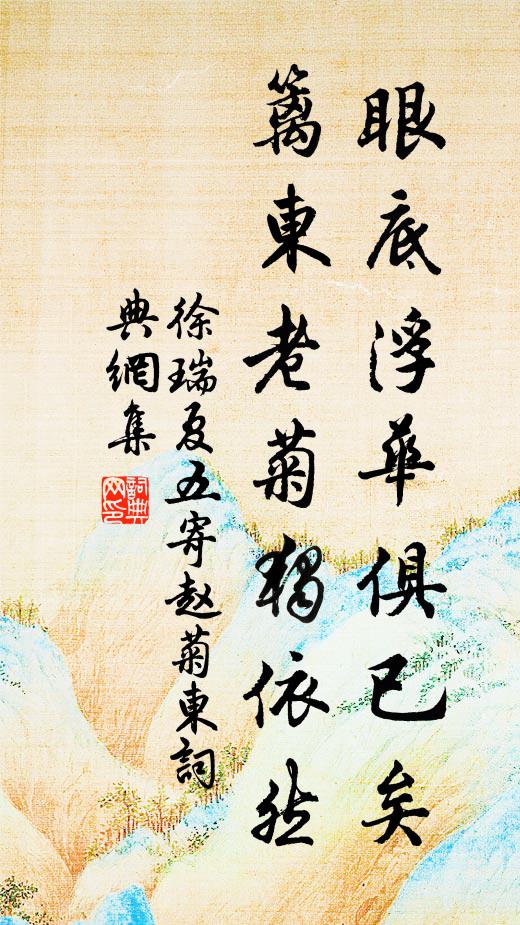 眼底浮華俱已矣
籬東老菊獨依然
徐瑞夏五寄赵菊東詞
典網集
詞典
网印